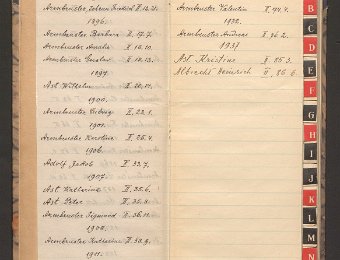 Armbruster Johann Friedrich II 12.21.
1896.
Armbruster Barbara II. 17.7.
Armbruster Amalie II 10.10.
Armbruster Gustav II 10.13.
1897.
Ast Wilhelm II. 20.11.
1900.
Armbruster Ludwig II 22.1.
1901.
Armbruster Karoline II 25.4.
1906.
Adolf Jakob II 32.7.
1907.
Ast Katharina II. 35.6.
Ast Peter II. 35.8.
Armbruster Sigmund II 36.11.
1908.
Armbruster Katharina II 38.9.
1911.
Armbruster Valentin II 44.4.
1932.
Armbruster Andreas II 76 2.
1937
Ast Kristine II 85 3.
Albrecht Heinrich II 85.6.
B
C
D
E
F
G
H
I
J
K
L
M
N